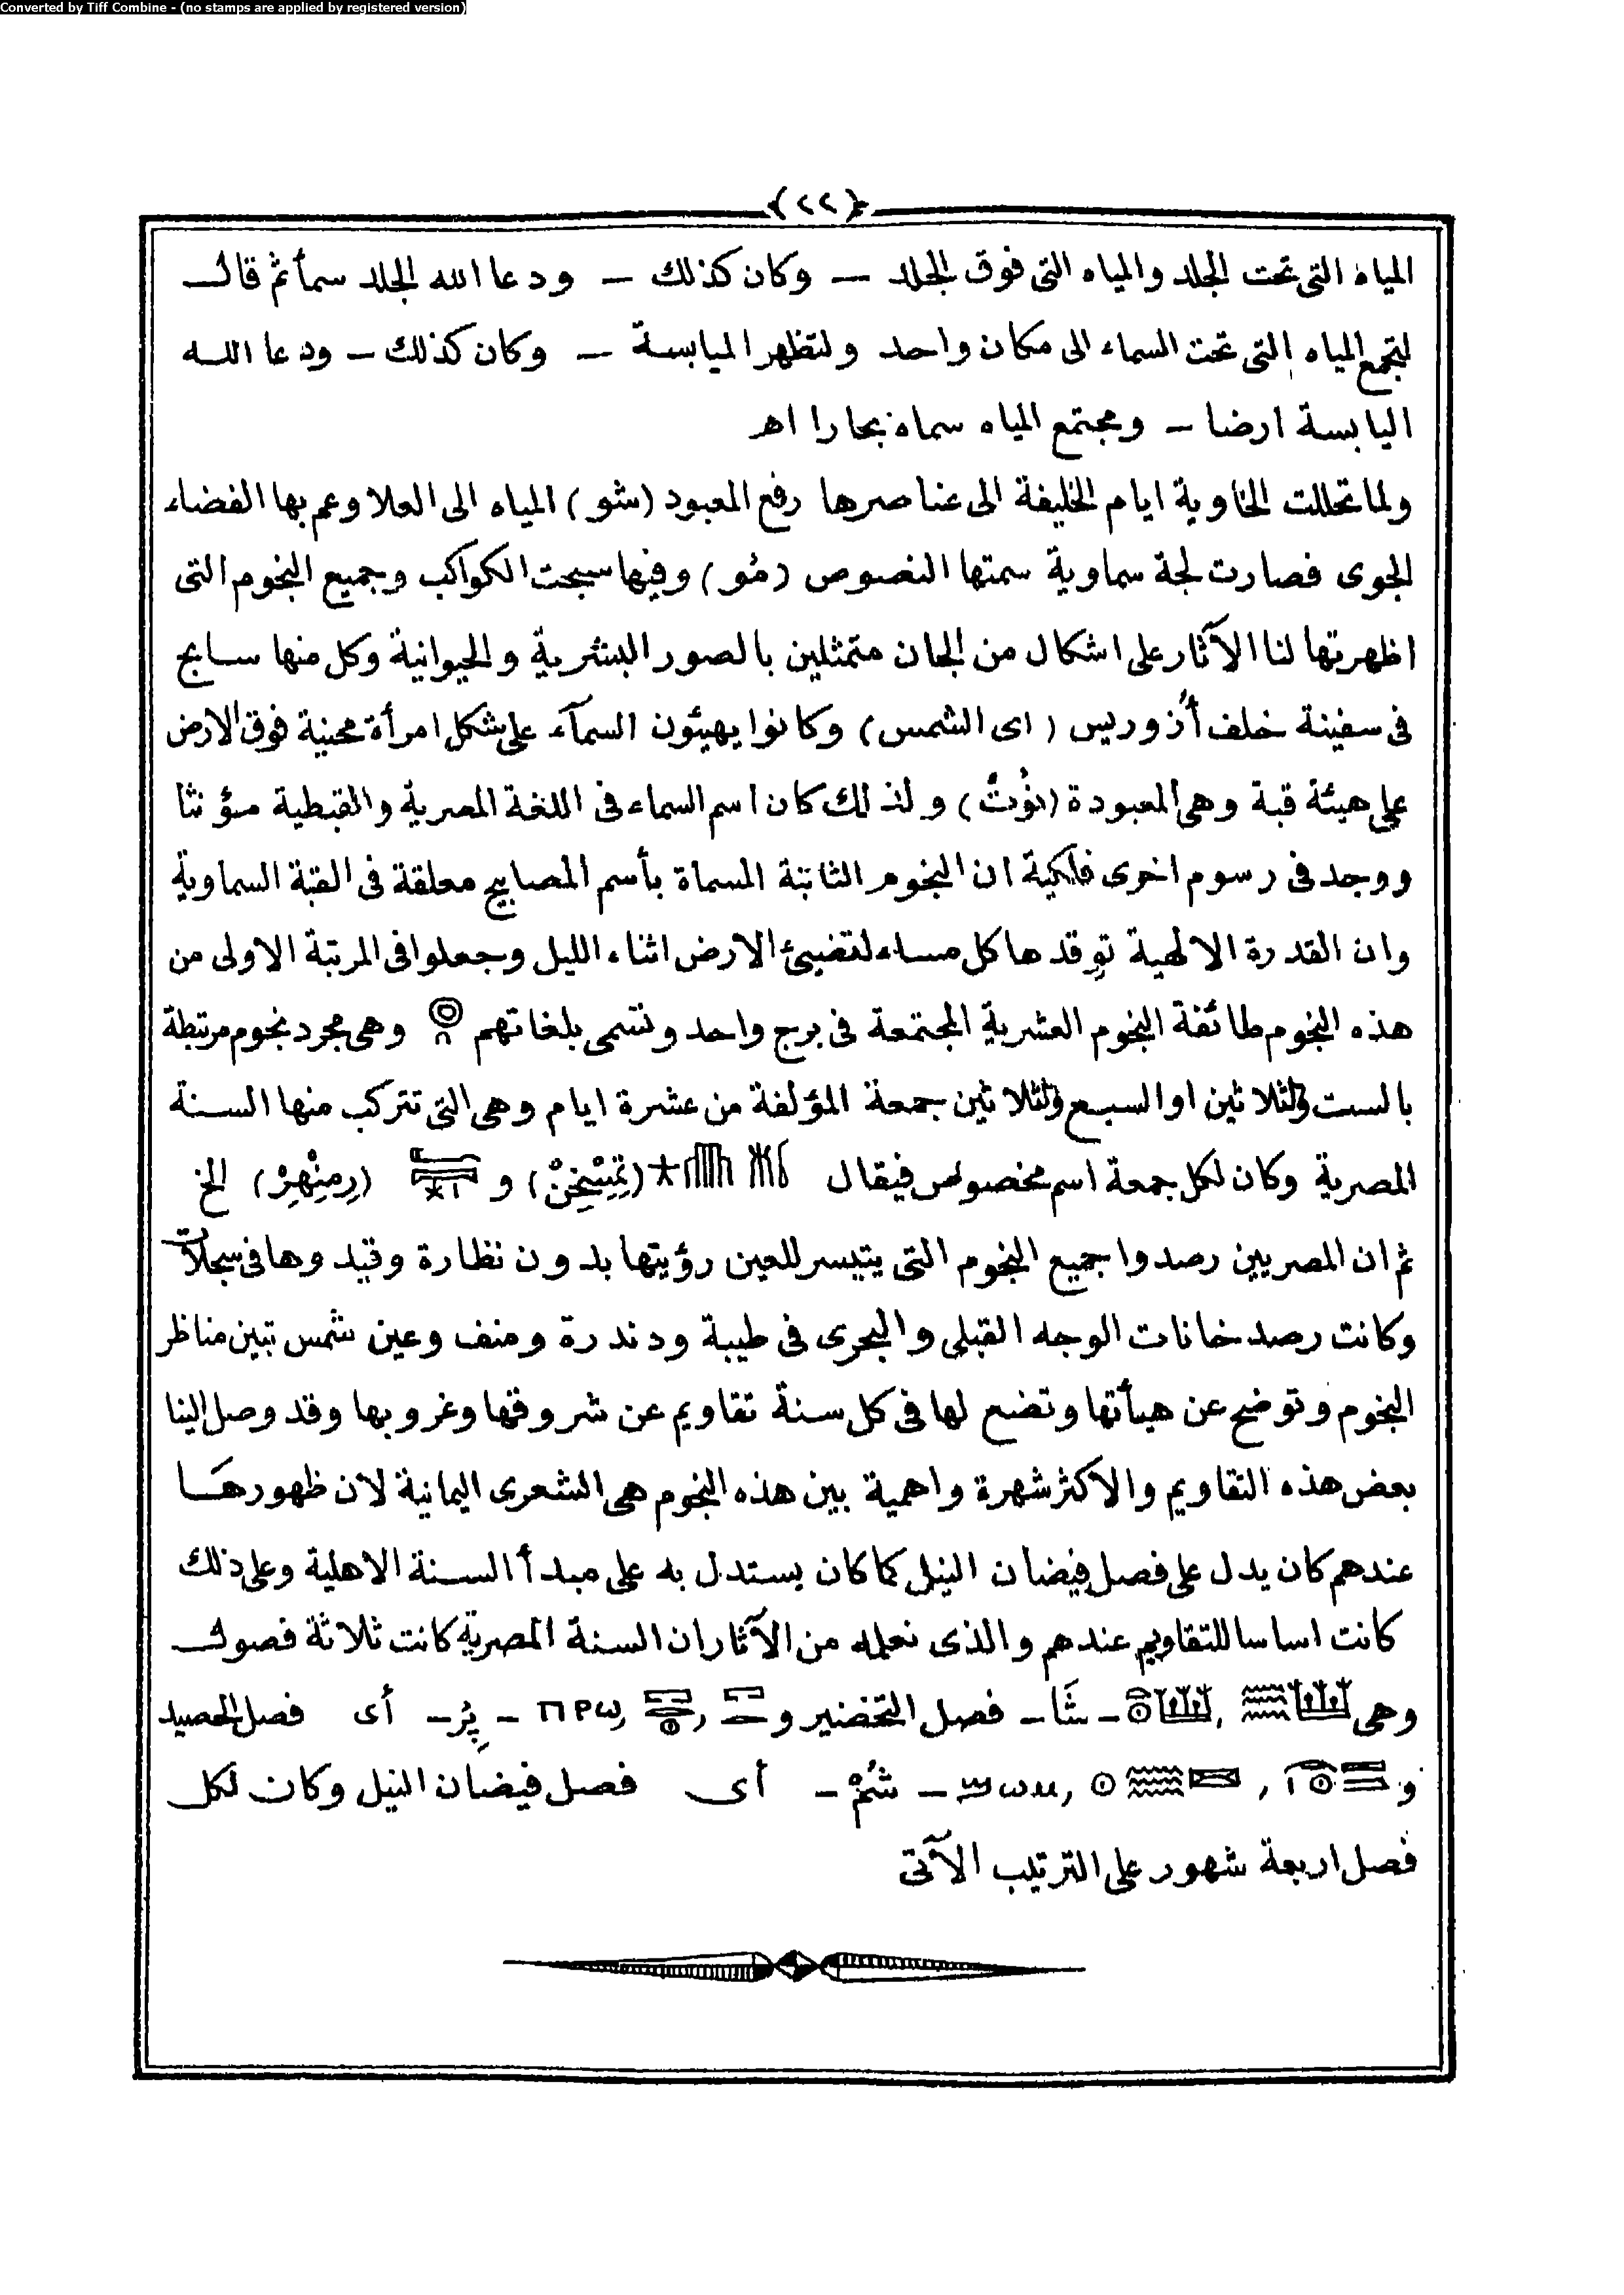 Converted by Tiff Combine - (no stamps are applied by registered version)
{٢٢}
المياه التى تحت الجلد والمياه التى فوق الجلد — وكان كذلك — ودعا الله الجلد سمأ ثم قال
لتجمع المياه التى تحت السماء الى مكان واحد ولتظهر الميابسة — وكان كذلك — ودعا الله
اليابسة ارضا — ومجتمع المياه سماه بحارا اهـ
ولما تحللت الخاوية ايام الخليفة الى عناصرها رفع المعبود (شو) المياه الى العلا وعم بها الفضاء
الجوى فصارت لجة سماوية سمتها النصوص (مُو) وفيها سبحت الكواكب وجميع النجوم التى
اظهرتها لنا الآثار على اشكال من الجان متمثلين بالصور البشرية والحيوانية وكل منها سابح
فى سفينة خلف أُزوريس (اى الشمس) وكانوا يهيئون السمآء على شكل امرأة محنية فوق الارض
على هيئة قبة وهى المعبودة (نُوتْ) ولذلك كان اسم السماء فى اللغة المصرية والقبطية مؤنثا
ووجد فى رسوم اخرى فلكية ان النجوم الثابتة المسماة بأسم المصابيح معلقة فى القبة السماوية
وان القدرة الالهية توقدها كل مساء لتضيئ الارض اثناء الليل وجعلوا فى المرتبة الاولى من
هذه النجوم طائفة النجوم العشرية المجتمعة فى برج واحد وتسمى بلغاتهم وهى مجرد نجوم مرتبطة
بالست والثلاثين او السبع والثلاثين جمعة المؤلفة من عشرة ايام وهى التى تتركب منها السنة
المصرية وكان لكل جمعة اسم مخصوص فيقال (تِمِسْخِنْ) و (رِمِنْهِرْ) الخ
ثم ان المصريين رصدوا جميع النجوم التى يتيسر للعين رؤيتها بدون نظارة وقيدوها فى سجلات
وكانت رصدخانات الوجه القبلى والبحرى فى طيبة ودندرة ومنف وعين شمس تبين مناظر
النجوم وتوضح عن هيأتها وتضع لها فى كل سنة تقاويم عن شروقها وغروبها وقد وصل الينا
بعض هذه التقاويم والاكثر شهرة واهمية بين هذه النجوم هى الشعرى اليمانية لان ظهورها
عندهم كان يدل على فصل فيضان النيل كما كان يستدل به على مبدأ السنة الاهلية وعلى ذلك
كانت اساسا للتقاويم عندهم والذى نعلمه من الآثار ان السنة المصرية كانت ثلاثة فصول
وهى ، — شَا — فصل التخضير و ، ، ⲡⲣⲱ — پِرُ — أى فصل الحصيد
و ، ، ϣⲱⲙ — شُمْ — أى فصل فيضان النيل وكان لكل
فصل اربعة شهور على الترتيب الآتى